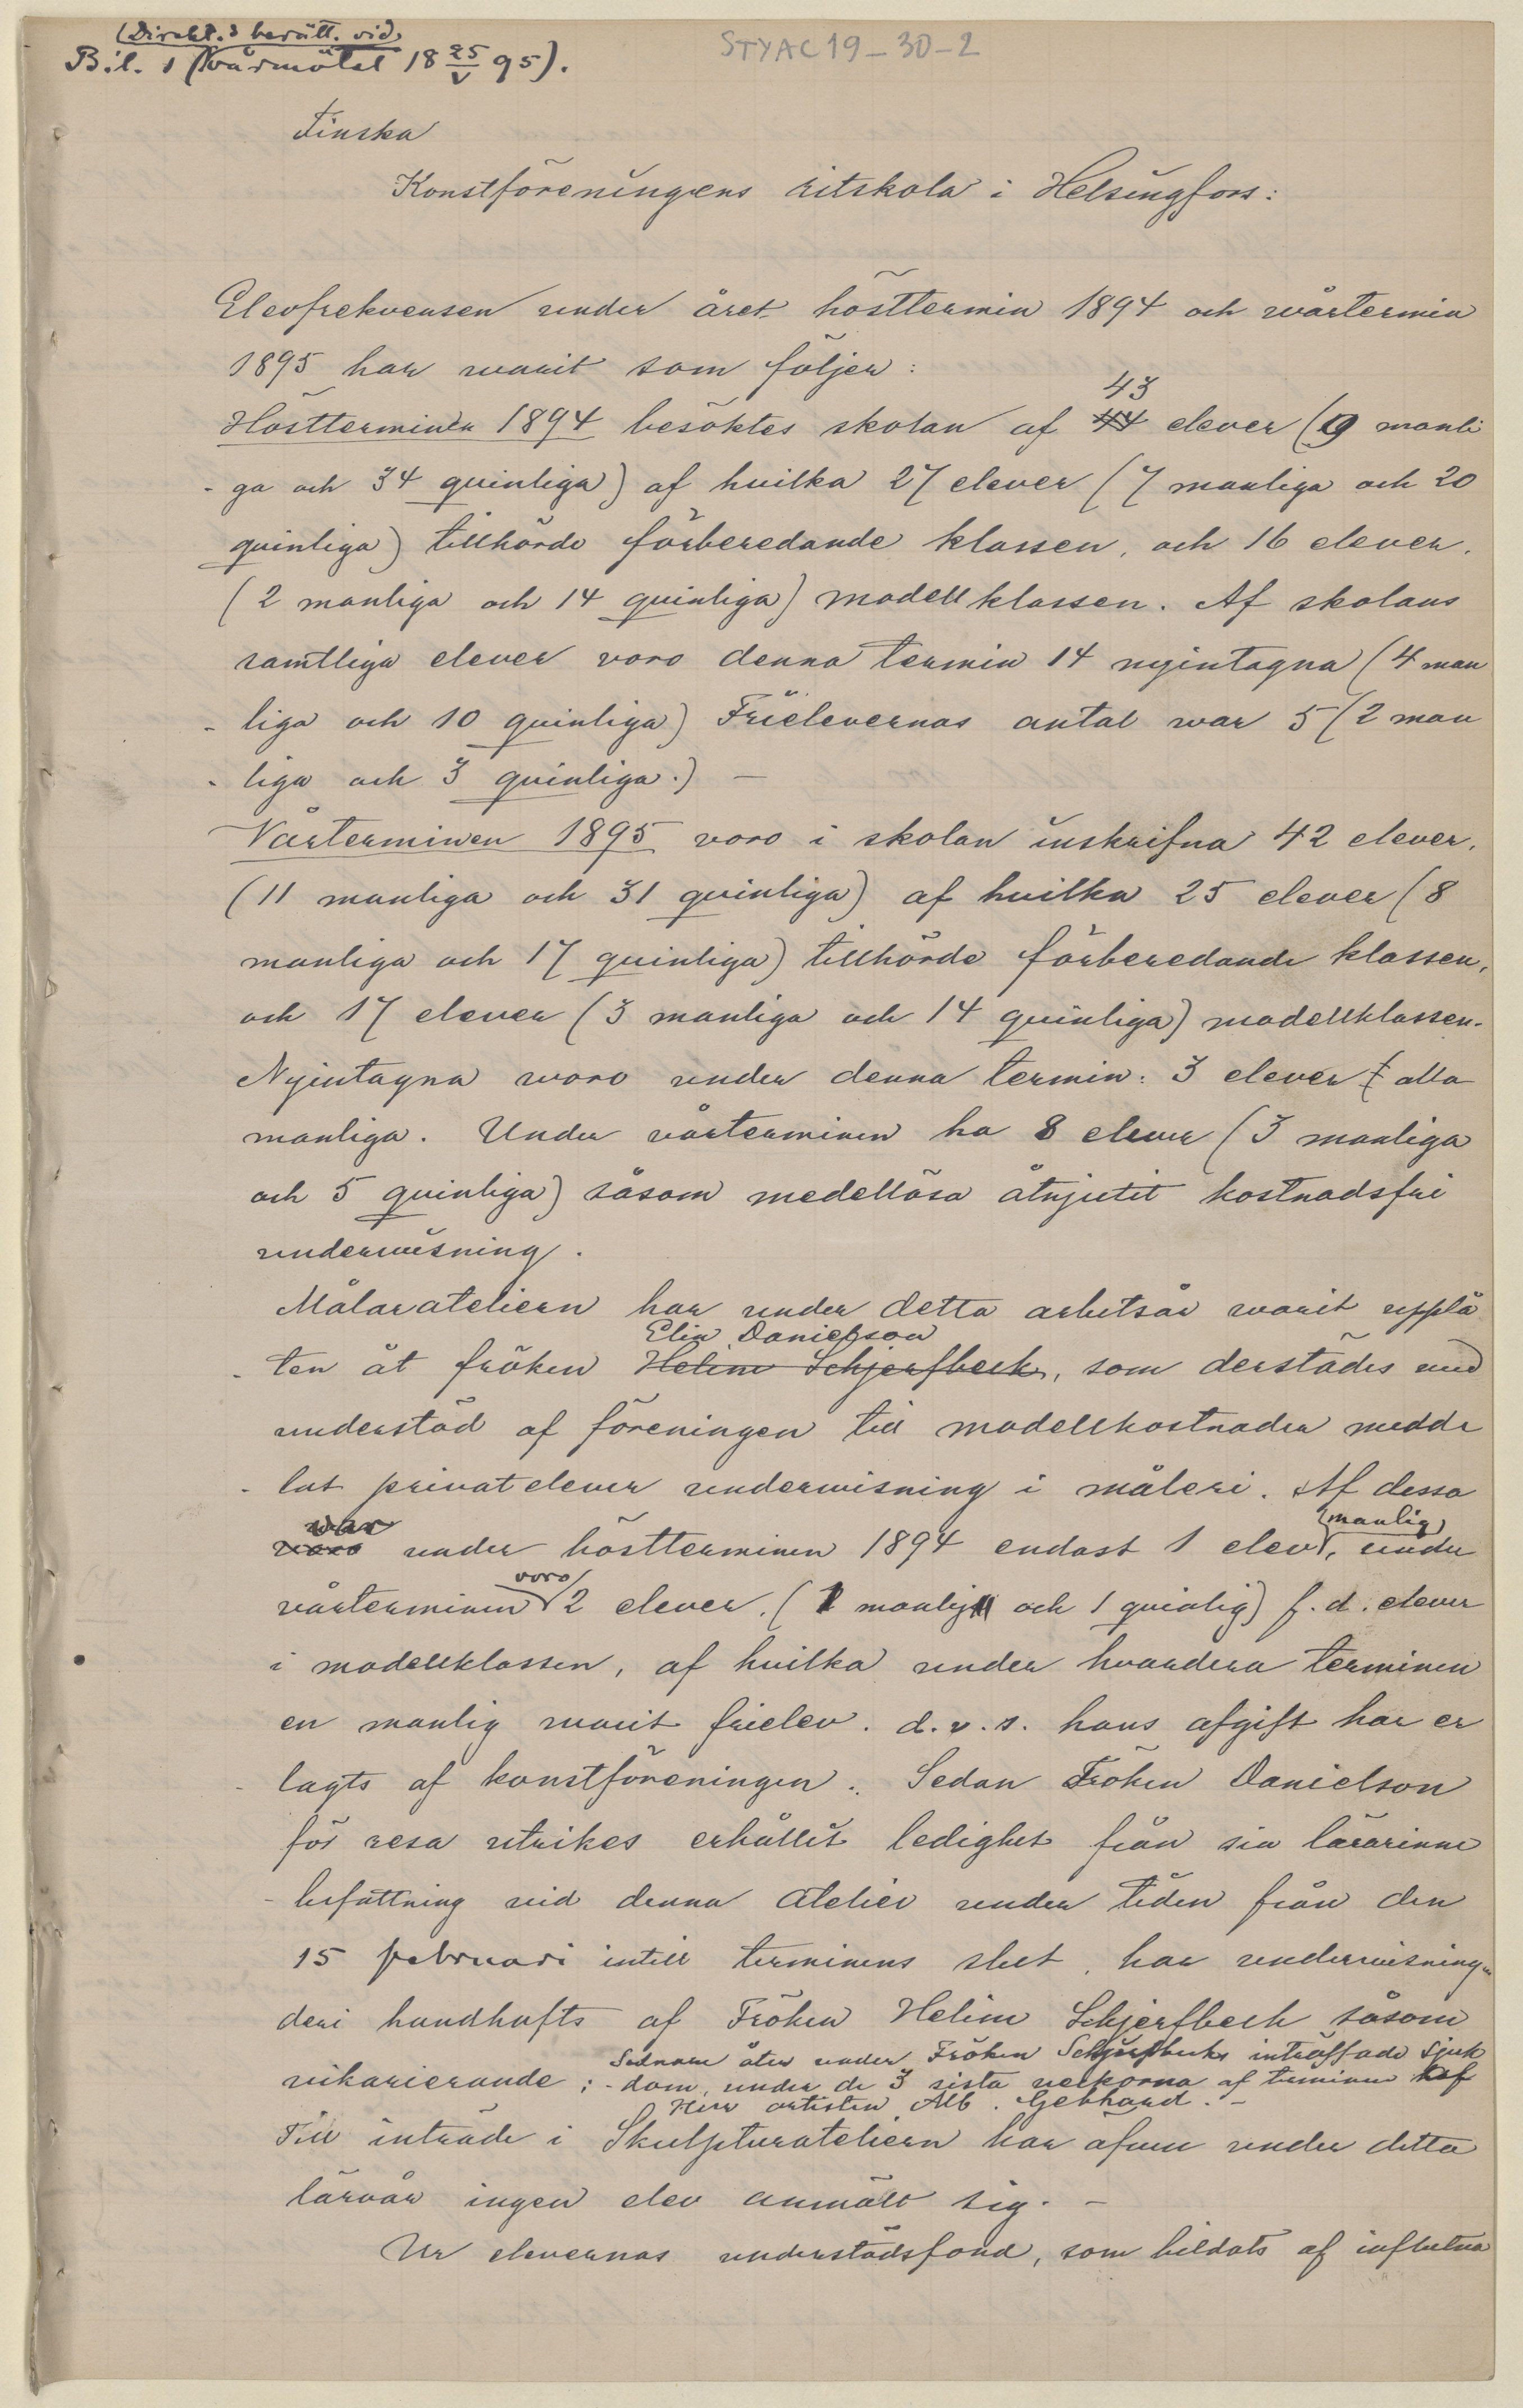 (Direkt.s berätt. vid
Bil. 1 (Vårmötet 18 25/V 95).
STYAC19-30-2
Finska
Konstföreningens ritskola i Helsingfors:
Elevfrekvensen under året hösttermin 1894 och vårtermin
1895 har warit som följer:
Höstterminen 1894 besöktes skolan af 44 43 elever (9 manli
- ga och 34 qvinliga) af hvilka 27 elever (7 manliga och 20
qvinliga) tillhörde förberedande klassen, och 16 elever.
(2 manliga och 14 qvinliga) modellklassen. Af skolans
samtliga elever voro denna termin 14 nyintagna (4 man
- liga och 10 qvinliga) Frielevernas antal war 5 (2 man
- liga och 3 qvinliga.) —
Vårterminen 1895 voro i skolan inskrifna 42 elever.
(11 manliga och 31 qvinliga) af hvilka 25 elever (8
manliga och 17 qvinliga) tillhörde förberedande klassen,
och 17 elever (3 manliga och 14 qvinliga) modellklassen.
Nyintagna woro under denna termin: 3 elever alla
manliga. Under vårterminen ha 8 elever (3 manliga
och 5 qvinliga) såsom medellösa åtnjutit kostnadsfri
underwisning.
Målarateliern har under detta arbetsår warit upplå
Elin Danielson
- ten åt fröken Helene Schjerfbeck, som derstädes med
understöd af föreningen till modellkostnader medde
- lat privatelever underwisning i måleri. Af dessa
war (manlig)
voro under höstterminen 1894 endast 1 elev, under
voro
vårterminen 2 elever. (1 manlig och 1 qvinlig) f.d. elever
i modellklassen, af hvilka under hvardera terminen
en manlig warit frielev. d.v.s. hans afgift har er
- lagts af konstföreningen. Sedan Fröken Danielson
för resa utrikes erhållit ledighet från sin lärarinne
- befattning vid denna atelier under tiden från den
15 februari intill terminens slut, har underwisningen
deri handhafts af Fröken Helene Schjerfbeck såsom
Sednare åter under Fröken Schjerfbecks inträffade sjuk
vikarierande; - dom, under de 3 sista veckorna af terminen af
Herr artisten Alb. Gebhard. —
Till inträde i Skulpturateliern har äfven under detta
läroår ingen elev anmält sig. —
Ur elevernas understödsfond, som bildats af influtna